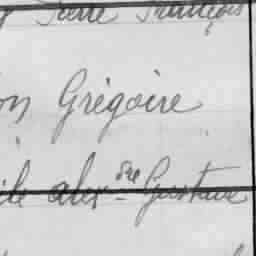 Pierre François
on Grégoire
ile alexdre Gustave